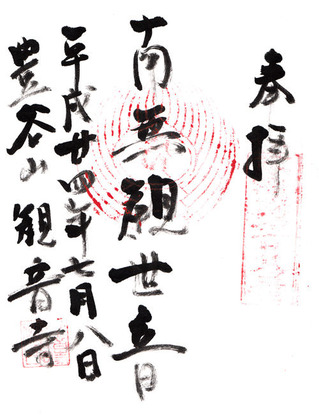 奉拝
南無観世音
平成廿四年七月八日
豊谷山観音寺